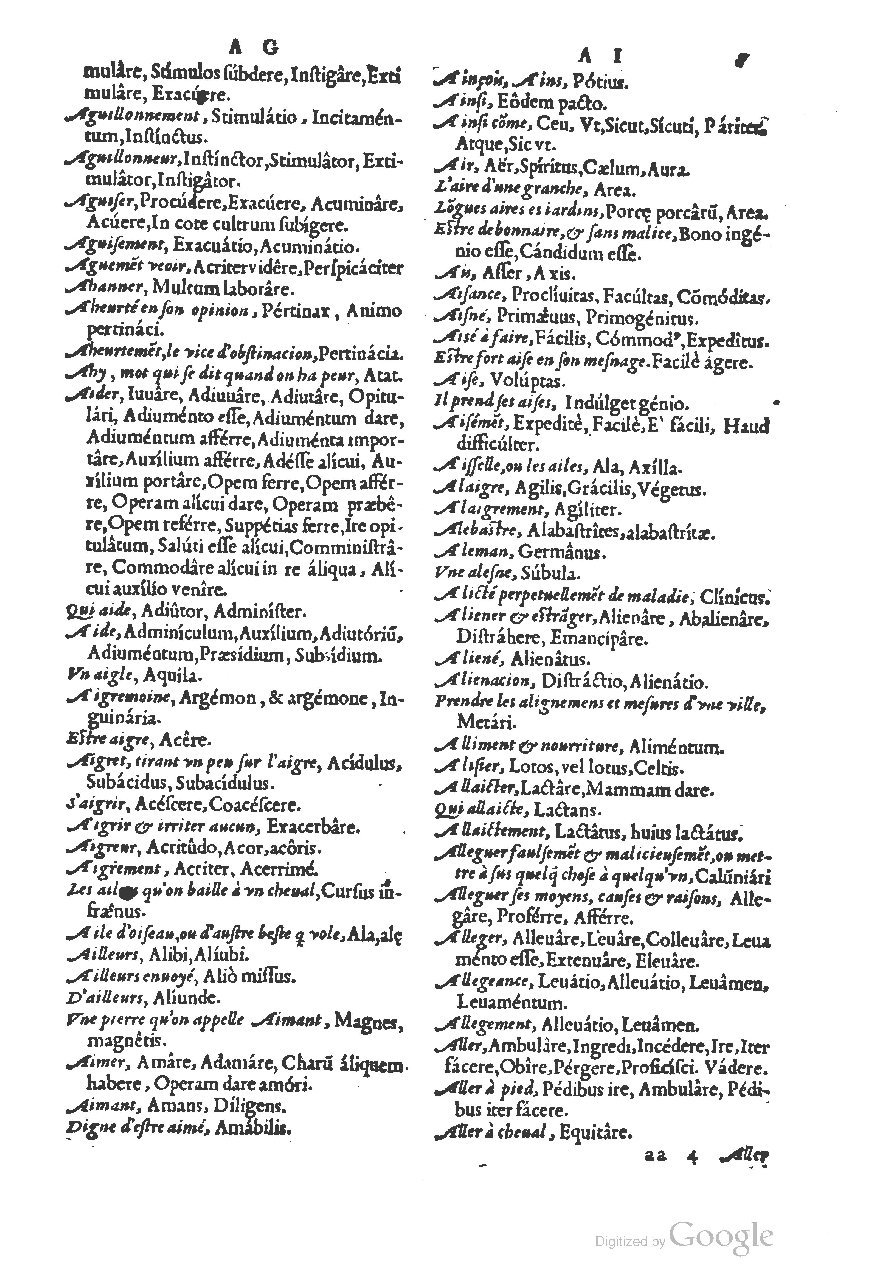 A G
mulâre, Stimulos súbdere, Instigâre, Exti
mulâre, Exacúere.
Aguillonnement, Stimulátio, Incitamén-
tum, Instínctus.
Aguillonneur, Instínctor, Stimulâtor, Exti-
mulâtor, Instigâtor.
Aguiser, Procúdere, Exacúere, Acumináre,
Acúere, In cote cultrum subígere.
Aguisement, Exacuátio, Acuminátio.
Aguemẽt veoir, Acriter vidêre, Perspicáciter
Ahanner, Multum laborâre.
Aheurté en son opinion, Pértinax, Animo
pertináci.
Aheurtemẽt, le vice d'obstinacion, Pertinácia.
Ahy, mot qui se dit quand on ha peur, Atat.
Aider, Iuuâre, Adiuuâre, Adiutâre, Opitu-
lári, Adiuménto esse, Adiuméntum dare,
Adiuméntum afférre, Adiuménta impor-
târe, Auxílium afférre, Adésse alícui, Au-
xílium portâre, Opem ferre, Opem affér-
re, Operam alícui dare, Operam præbê-
re, Opem reférre, Suppétias ferre, Ire opi-
tulâtum, Salúti esse alícui, Comministrâ-
re, Commodâre alícui in re áliqua, Alí-
cui auxílio venîre.
Qui aide, Adiûtor, Adminíster.
Aide, Adminículum, Auxílium, Adiutóriũ,
Adiuméntum, Præsídium, Subsídium.
Vn aigle, Aquila.
Aigremoine, Argémon, & argémone, In-
guinária.
Estre aigre, Acêre.
Aigret, tirant vn peu sur l'aigre, Acídulus,
Subácidus, Subacídulus.
S'aigrir, Acéscere, Coacéscere.
Aigrir & irriter aucun, Exacerbâre.
Aigreur, Acritûdo, Acor, acôris.
Aigrement, Acriter, Acerrimé.
Les qu'on baille à vn cheual, Cursus in-
frænus.
Aile d'oiseau, ou d'austre beste q̃ vole, Ala, alę
Ailleurs, Alibi, Aliubi.
Ailleurs enuoyé, Aliò missus.
D'ailleurs, Aliunde.
Vne pierre qu'on appelle Aimant, Magnes,
magnêtis.
Aimer, Amâre, Adamáre, Charũ áliquem
habere, Operam dare amóri.
Aimant, Amans, Díligens.
Digne d'estre aimé, Amábilis.
A I
8
Ainçois, Ains, Pótius.
Ainsi, Eôdem pacto.
Ainsi cõme, Ceu, Vt, Sicut, Sícuti, Páriter
Atque, Sic vt.
Air, Aër, Spíritus, Cælum, Aura.
L'aire d'une granche, Area.
Lõgues aires es iardins, Porcę porcárũ, Area.
Estre debonnaire, & sans malice, Bono ingé-
nio esse, Cándidum esse.
Ais, Asser, Axis.
Aisance, Proclíuitas, Facúltas, Cõmóditas.
Aisné, Primæuus, Primogénitus.
Aisé à faire, Fácilis, Cómmodꝰ, Expedîtus.
Estre fort aise en son mesnage. Facilè ágere.
Aise, Volúptas.
Il prend ses aises, Indúlget génio.
Aisémẽt, Expeditè, Facilè, E' fácili, Haud
difficúlter.
Aisselle, ou les ailes, Ala, Axílla.
Alaigre, Agilis, Grácilis, Végetus.
Alaigrement, Agíliter.
Alebastre, Alabastrîtes, alabastrítæ.
Aleman, Germânus.
Vne alesne, Súbula.
Alicté perpetuellemẽt de maladie, Clínicus.
Aliener & estrãger, Alienâre, Abalienâre,
Distráhere, Emancipâre.
Aliené, Alienâtus.
Alienacion, Distráctio, Alienátio.
Prendre les alignemens et mesures d'vne ville,
Metári.
Alliment & nourriture, Aliméntum.
Alisier, Lotos, vel lotus, Celtis.
Allaicter, Lactâre, Mammam dare.
Qui allaicte, Lactans.
Allaictement, Lactâtus, huius lactátus.
Alleguer faulsemẽt & malicieusemẽt, ou met-
tre à sus quelq̃ chose à quelqu'vn, Calũniári
Alleguer ses moyens, causes & raisons, Alle-
gâre, Proférre, Afférre.
Alleger, Alleuâre, Leuâre, Colleuâre, Leua
ménto esse, Extenuâre, Eleuâre.
Allegeance, Leuátio, Alleuátio, Leuâmen,
Leuaméntum.
Allegement, Alleuátio, Leuâmen.
Aller, Ambulâre, Ingredi, Incédere, Ire, Iter
fácere, Obîre, Pérgere, Proficísci. Vádere.
Aller à pied, Pédibus ire, Ambulâre, Pédi-
bus iter fácere.
Aller à cheual, Equitâre.
aa 4 Aller
Digitized by Google